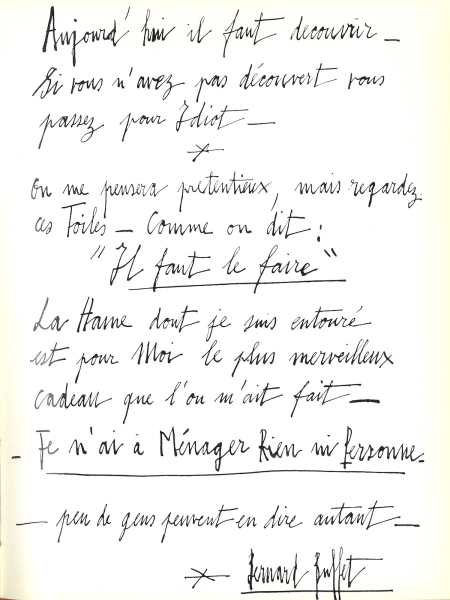 Aujourd'hui il faut decouvrir —
Si vous n'avez pas découvert vous
passez pour Idiot —
on me pensera pretentieux, mais regardez
ces Toiles — Comme on dit :
"Il faut le faire"
La Haine dont je suis entouré
est pour Moi le plus merveilleux
cadeau que l'on m'ait fait —
- Je n'ai à Ménager Rien ni Personne.
— peu de gens peuvent en dire autant —
Bernard Buffet